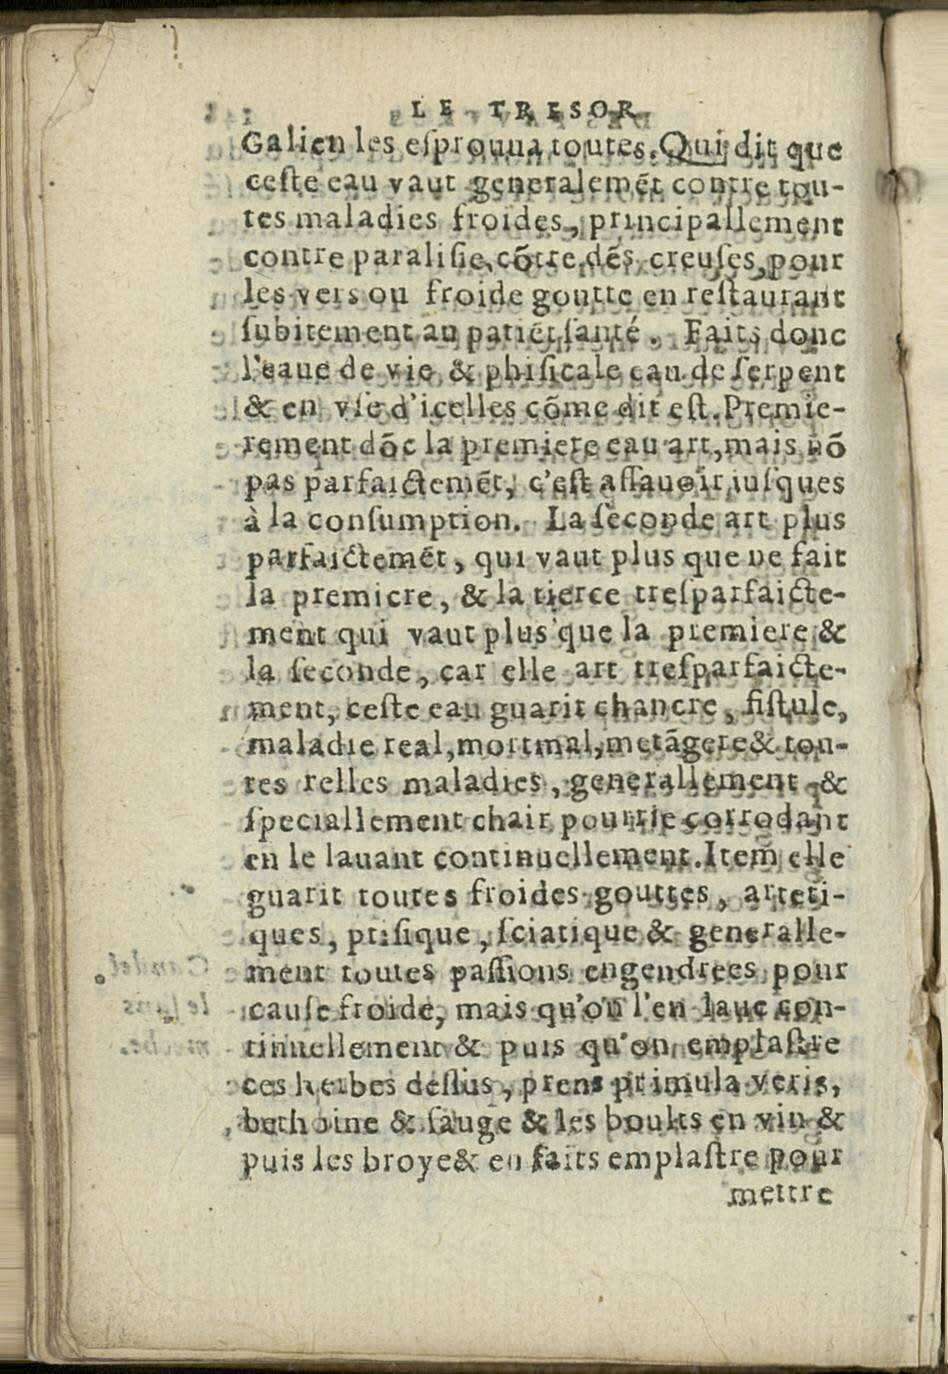 LE TRESOR
Galien les eſprouua toutes. Qui dit que
ceſte eau vaut generalemẽt contre tou-
tes maladies froides, principallement
contre paraliſie, cõtre dẽs creuſes, pour
les vers ou froide goutte en reſtaurant
ſubitement au patiẽt ſanté. Faits donc
l'eaue de vie & phiſicale eau de ſerpent
& en vſe d'icelles cõme dit eſt. Premie-
rement dõc la premiere eau art, mais nõ
pas parfaictemẽt, c'eſt aſſauoir iuſques
à la conſumption. La ſeconde art plus
parfaictemẽt, qui vaut plus que ne fait
la premiere, & la tierce treſparfaicte-
ment qui vaut plus que la premiere &
la ſeconde, car elle art treſparfaicte-
ment, ceſte eau guarit chancre, fiſtule,
maladie real, mortmal, metãgere & tou-
tes telles maladies, generallement &
ſpeciallement chair pourrie corrodant
en le lauant continuellement. Item elle
guarit toutes froides gouttes, arteti-
ques, ptiſique, ſciatique & generalle-
ment toutes paſſions engendrees pour
cauſe froide, mais qu'on l'en laue con-
tinuellement & puis qu'on emplaſtre
ces herbes deſſus, prens primula veris,
bethoine & ſauge & les boults en vin &
puis les broye & en faits emplaſtre pour
mettre